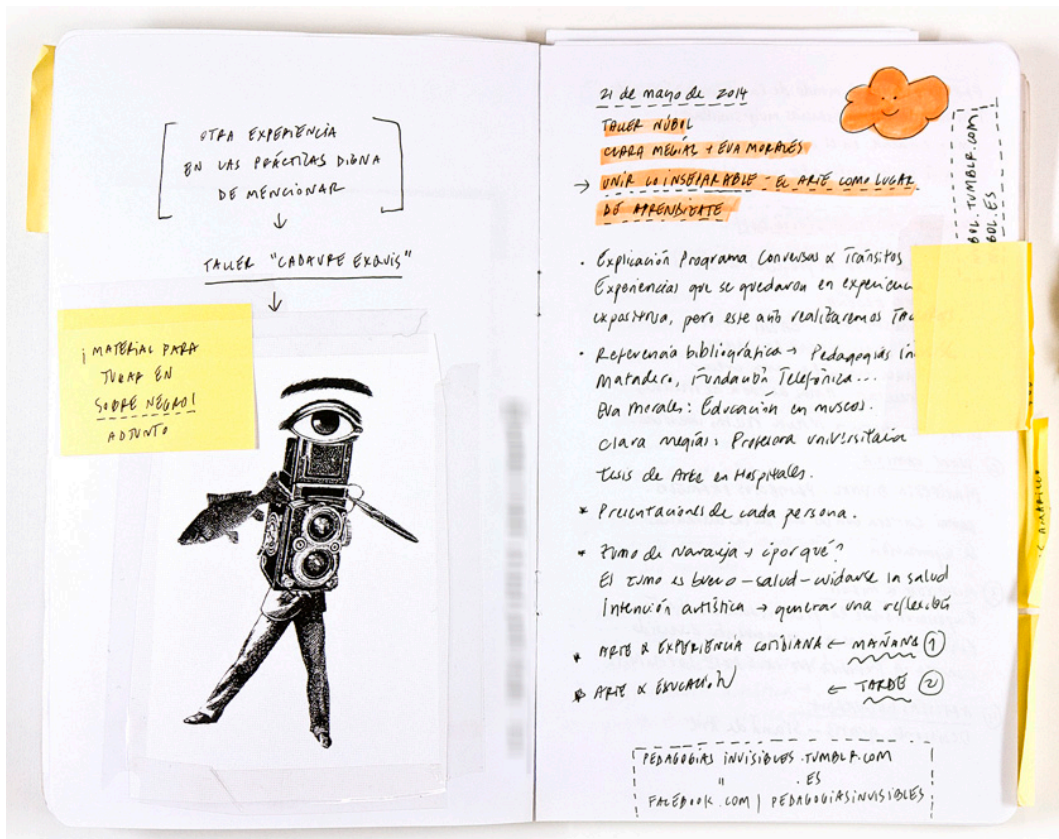 OTRA EXPERIENCIA
EN LAS PRÁCTICAS DIGNA
DE MENCIONAR
↓
TALLER "CADAVRE EXQUIS"
↓
¡MATERIAL PARA
EN
SOBRE NEGRO!
ADJUNTO
21 de mayo de 2014
TALLER NÚBOL
CLARA MEGÍAS + EVA MORALES
→ UNIR LO INSEPARABLE - EL ARTE COMO LUGAR
DE APRENDIZAJE
BOL.TUMBLR.COM
BOL.ES
· Explicación Programa Conversas & Tránsitos
Experiencias que se quedaron en
expositiva, pero este año realizaremos
· Referencia bibliográfica → Pedagogías
Matadero, Fundación Telefónica...
Eva Morales: Educación en museos.
Clara Megías: Profesora universitaria
Tesis de Arte en Hospitales.
* Presentaciones de cada persona.
* Zumo de Naranja → ¿por qué?
El zumo es bueno - salud - cuidarse la salud
Intención artística → generar una reflexión
* ARTE & EXPERIENCIA COTIDIANA ← MAÑANA ①
* ARTE & EDUCACIÓN ← TARDE ②
AMARILLO
PEDAGOGÍAS INVISIBLES.TUMBLR.COM
" .ES
FACEBOOK.COM | PEDAGOGIASINVISIBLES